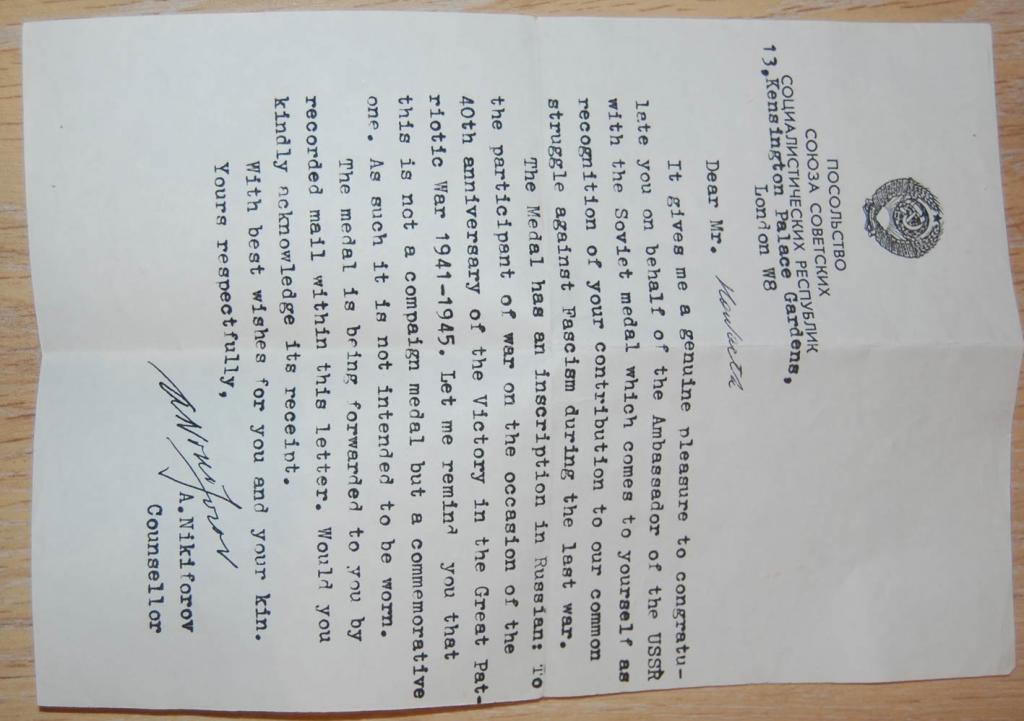 ПОСОЛЬСТВО
СОЮЗА СОВЕТСКИХ
СОЦИАЛИСТИЧЕСКИХ РЕСПУБЛИК
13,Kensington Palace Gardens,
London W8
Dear Mr.
It gives me a genuine pleasure to congratu-
late you on behalf of the Ambassador of the USSR
with the Soviet medal which comes to yourself as
recognition of your contribution to our common
struggle against Fascism during the last war.
The Medal has an inscription in Russian: To
the participant of war on the occasion of the
40th anniversary of the Victory in the Great Pat-
riotic War 1941-1945. Let me remind you that
this is not a compaign medal but a commemorative
one. As such it is not intended to be worn.
The medal is being forwarded to you by
recorded mail within this letter. Would you
kindly acknowledge its receipt.
With best wishes for you and your kin.
Yours respectfully,
A.Nikiforov
Counsellor